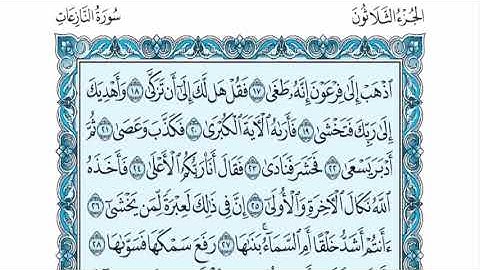 الجُزْءُ الثَّلَاثُونَ
سُورَةُ النَّازِعَاتِ
ٱذْهَبْ إِلَىٰ فِرْعَوْنَ إِنَّهُۥ طَغَىٰ ١٧ فَقُلْ هَل لَّكَ إِلَىٰٓ أَن تَزَكَّىٰ ١٨ وَأَهْدِيَكَ
إِلَىٰ رَبِّكَ فَتَخْشَىٰ ١٩ فَأَرَىٰهُ ٱلْءَايَةَ ٱلْكُبْرَىٰ ٢٠ فَكَذَّبَ وَعَصَىٰ ٢١ ثُمَّ
أَدْبَرَ يَسْعَىٰ ٢٢ فَحَشَرَ فَنَادَىٰ ٢٣ فَقَالَ أَنَا۠ رَبُّكُمُ ٱلْأَعْلَىٰ ٢٤ فَأَخَذَهُ
ٱللَّهُ نَكَالَ ٱلْءَاخِرَةِ وَٱلْأُولَىٰٓ ٢٥ إِنَّ فِى ذَٰلِكَ لَعِبْرَةً لِّمَن يَخْشَىٰٓ ٢٦
ءَأَنتُمْ أَشَدُّ خَلْقًا أَمِ ٱلسَّمَآءُ ۚ بَنَىٰهَا ٢٧ رَفَعَ سَمْكَهَا فَسَوَّىٰهَا ٢٨